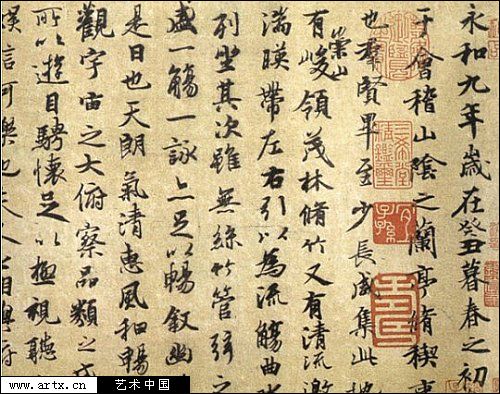 永和九年歲在癸丑暮春之初
于會稽山陰之蘭亭脩稧事
也羣賢畢至少長咸集此地
有崇山峻領茂林脩竹又有清流激
湍暎帶左右引以為流觴曲水
列坐其次雖無絲竹管弦之
盛一觴一詠亦足以暢敘幽
是日也天朗氣清惠風和暢
觀宇宙之大俯察品類之
所以遊目騁懷足以極視聽
信可樂也夫人之相與俯
三希堂精鑑璽
宜子孫
www.artx.cn 艺术中国